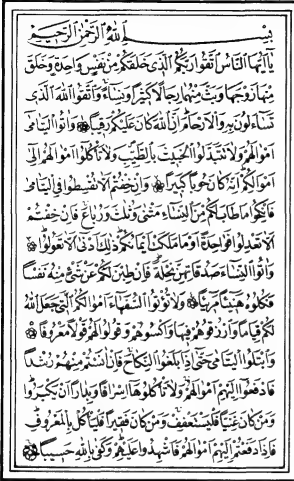 بِسْمِ اللَّهِ الرَّحْمٰنِ الرَّحِيمِ
يَا أَيُّهَا النَّاسُ اتَّقُوا رَبَّكُمُ الَّذِى خَلَقَكُمْ مِنْ نَفْسٍ وَاحِدَةٍ وَخَلَقَ
مِنْهَا زَوْجَهَا وَبَثَّ مِنْهُمَا رِجَالًا كَثِيرًا وَنِسَاءً وَاتَّقُوا اللَّهَ الَّذِى
تَسَاءَلُونَ بِهِ وَالْأَرْحَامَ إِنَّ اللَّهَ كَانَ عَلَيْكُمْ رَقِيبًا وَآتُوا الْيَتَامَى
أَمْوَالَهُمْ وَلَا تَتَبَدَّلُوا الْخَبِيثَ بِالطَّيِّبِ وَلَا تَأْكُلُوا أَمْوَالَهُمْ إِلَى
أَمْوَالِكُمْ إِنَّهُ كَانَ حُوبًا كَبِيرًا وَإِنْ خِفْتُمْ أَلَّا تُقْسِطُوا فِى الْيَتَامَى
فَانْكِحُوا مَا طَابَ لَكُمْ مِنَ النِّسَاءِ مَثْنَى وَثُلٰثَ وَرُبَاعَ فَإِنْ خِفْتُمْ
أَلَّا تَعْدِلُوا فَوَاحِدَةً أَوْ مَا مَلَكَتْ أَيْمَانُكُمْ ذٰلِكَ أَدْنَى أَلَّا تَعُولُوا
وَآتُوا النِّسَاءَ صَدُقَاتِهِنَّ نِحْلَةً فَإِنْ طِبْنَ لَكُمْ عَنْ شَىْءٍ مِنْهُ نَفْسًا
فَكُلُوهُ هَنِيئًا مَرِيئًا وَلَا تُؤْتُوا السُّفَهَاءَ أَمْوَالَكُمُ الَّتِى جَعَلَ اللَّهُ
لَكُمْ قِيَامًا وَارْزُقُوهُمْ فِيهَا وَاكْسُوهُمْ وَقُولُوا لَهُمْ قَوْلًا مَعْرُوفًا
وَابْتَلُوا الْيَتَامَى حَتَّى إِذَا بَلَغُوا النِّكَاحَ فَإِنْ آنَسْتُمْ مِنْهُمْ رُشْدًا
فَادْفَعُوا إِلَيْهِمْ أَمْوَالَهُمْ وَلَا تَأْكُلُوهَا إِسْرَافًا وَبِدَارًا أَنْ يَكْبَرُوا
وَمَنْ كَانَ غَنِيًّا فَلْيَسْتَعْفِفْ وَمَنْ كَانَ فَقِيرًا فَلْيَأْكُلْ بِالْمَعْرُوفِ
فَإِذَا دَفَعْتُمْ إِلَيْهِمْ أَمْوَالَهُمْ فَأَشْهِدُوا عَلَيْهِمْ وَكَفَى بِاللَّهِ حَسِيبًا